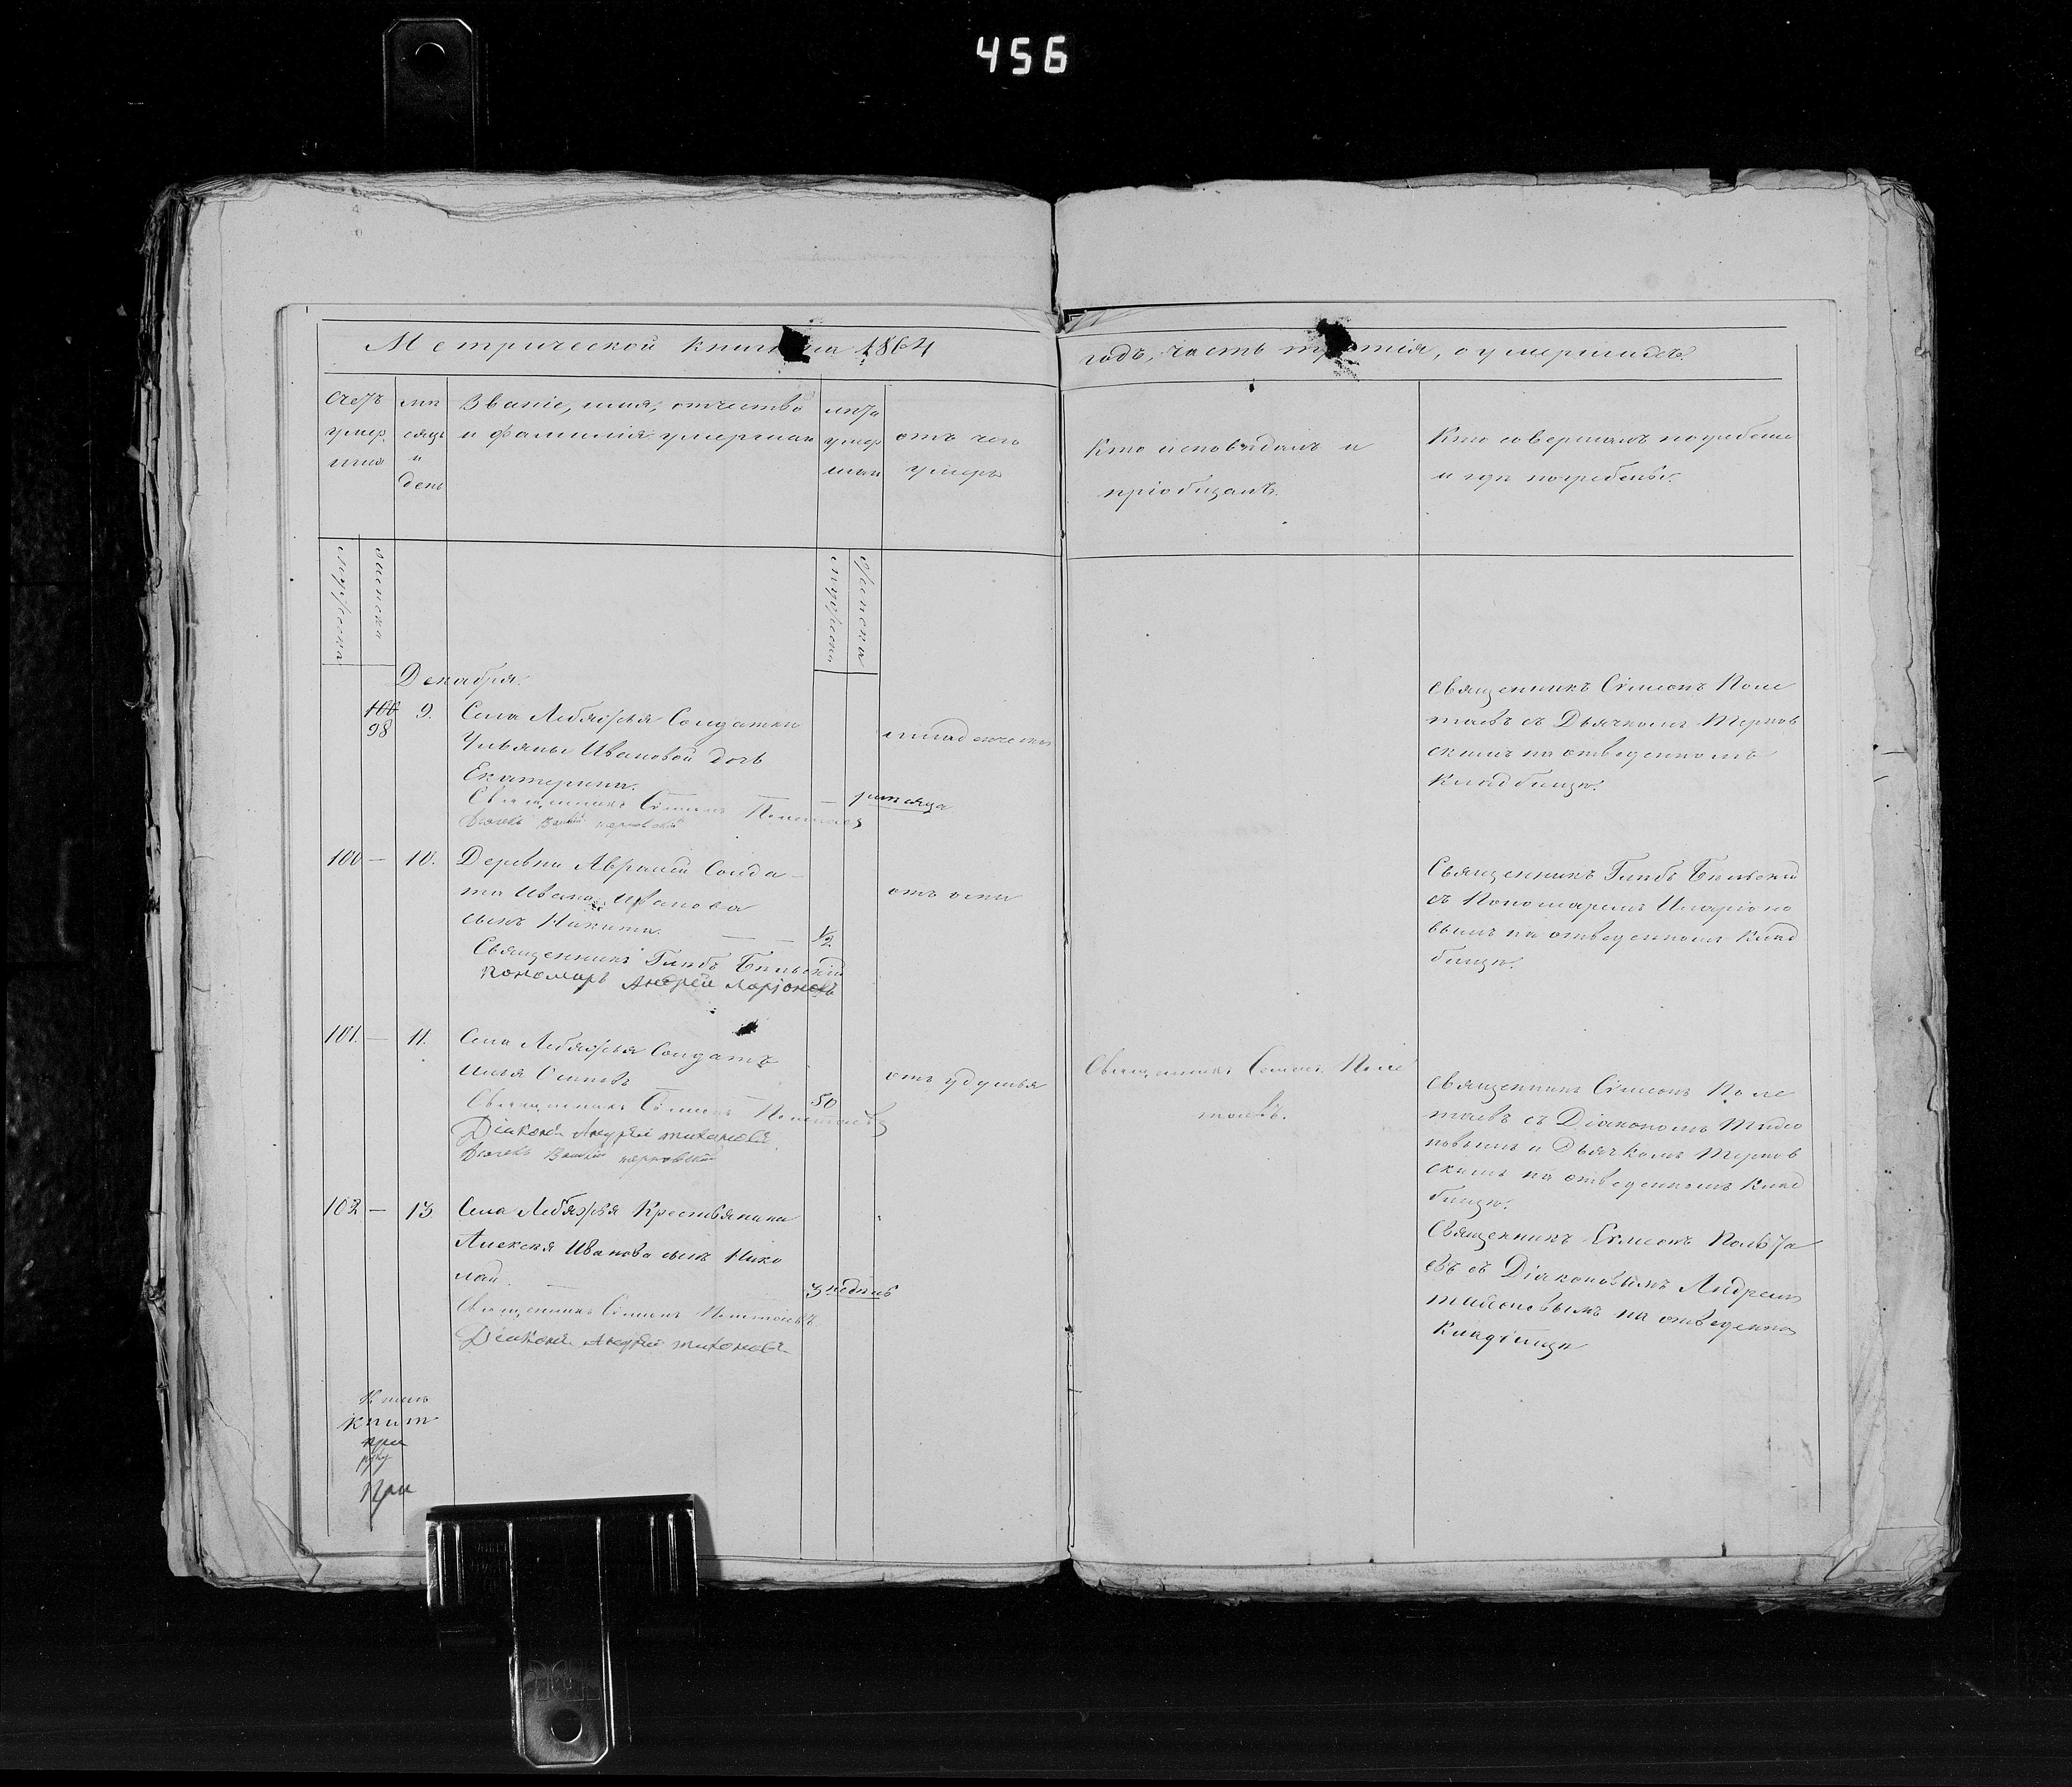 456
Метрической книги на 1864
годъ, часть третія, о умершихъ.
Счетъ умер шихъ
мѣ сяцъ и день
Званіе, имя, отчество и фамилія умершихъ
лѣта умер шихъ
отъ чего умеръ
Кто исповѣдалъ и пріобщалъ.
Кто совершалъ погребеніе и гдѣ погребены.
мужеска
женска
мужеска
женска
Декабря.
100
98
9.
Села Лебяжья Солдатки
Ульяны Ивановой дочь
Екатерина.
мѣсяца
младенческой
Священникъ Сѵмеонъ Полетаевъ
Дьячекъ Терновскій
Священникъ Сѵмеонъ Поле
таевъ съ Дьячкомъ Тернов
скимъ на отведенномъ
кладбищѣ.
100 — 10.
Деревни Авралей Солда-
та Ивана Иванова
сынъ Никита. — — 1/2
отъ оспы
Священникъ Глебъ Бельскій
пономарь Андрей Ларіоновъ
Священникъ Глебъ Бельскій
съ Пономаремъ Иларіоно
вымъ на отведенномъ клад
бищѣ.
101. — 11.
Села Лебяжья Солдатъ
Илья Осиповъ
50
отъ удушья
Священникъ Сѵмеонъ Полетаевъ
Діаконъ Андрей Тихоновъ
Дьячекъ Терновскій
Священникъ Сѵмеонъ Поле
таевъ.
Священникъ Сѵмеонъ Поле
таевъ съ Діакономъ Тихо
новымъ и Дьячкомъ Тернов
скимъ на отведенномъ клад
бищѣ.
102 — 13
Села Лебяжья Крестьянина
Алексѣя Иванова сынъ Нико
лай. —
3 недѣль
Священникъ Сѵмеонъ Полетаевъ
Діаконъ Андрей Тихоновъ
Священникъ Сѵмеонъ Полета
евъ съ Діакономъ Андреемъ
Тихоновымъ на отведенно
Кладбищѣ
К сей
книг
при
руку
При